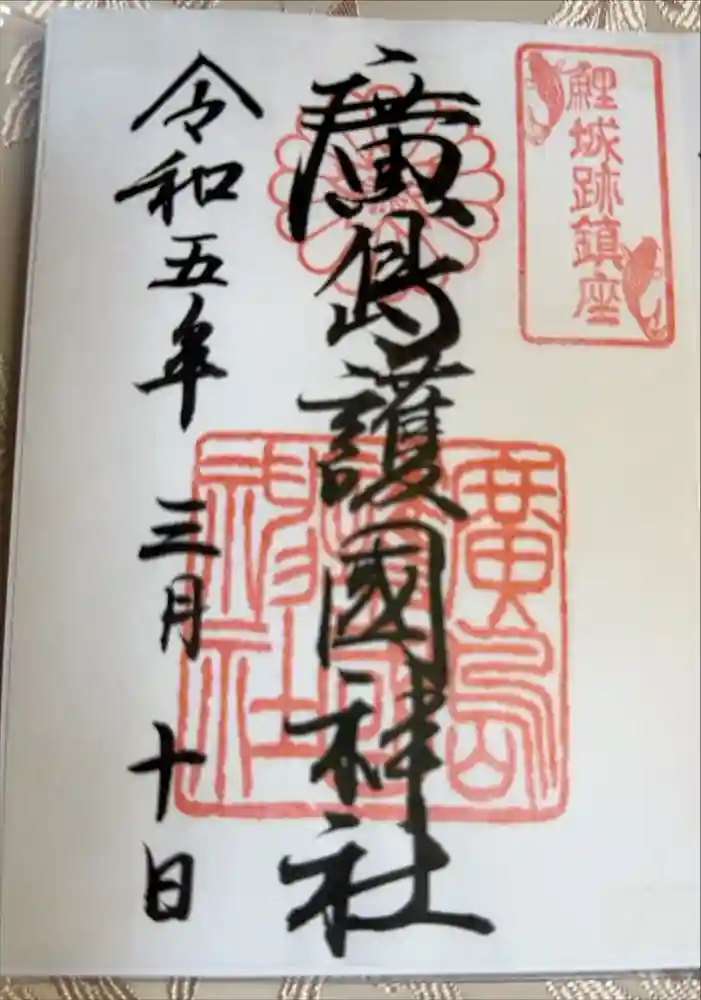 鯉城跡鎮座
廣島護國神社
廣島護國神社
令和五年 三月 十日